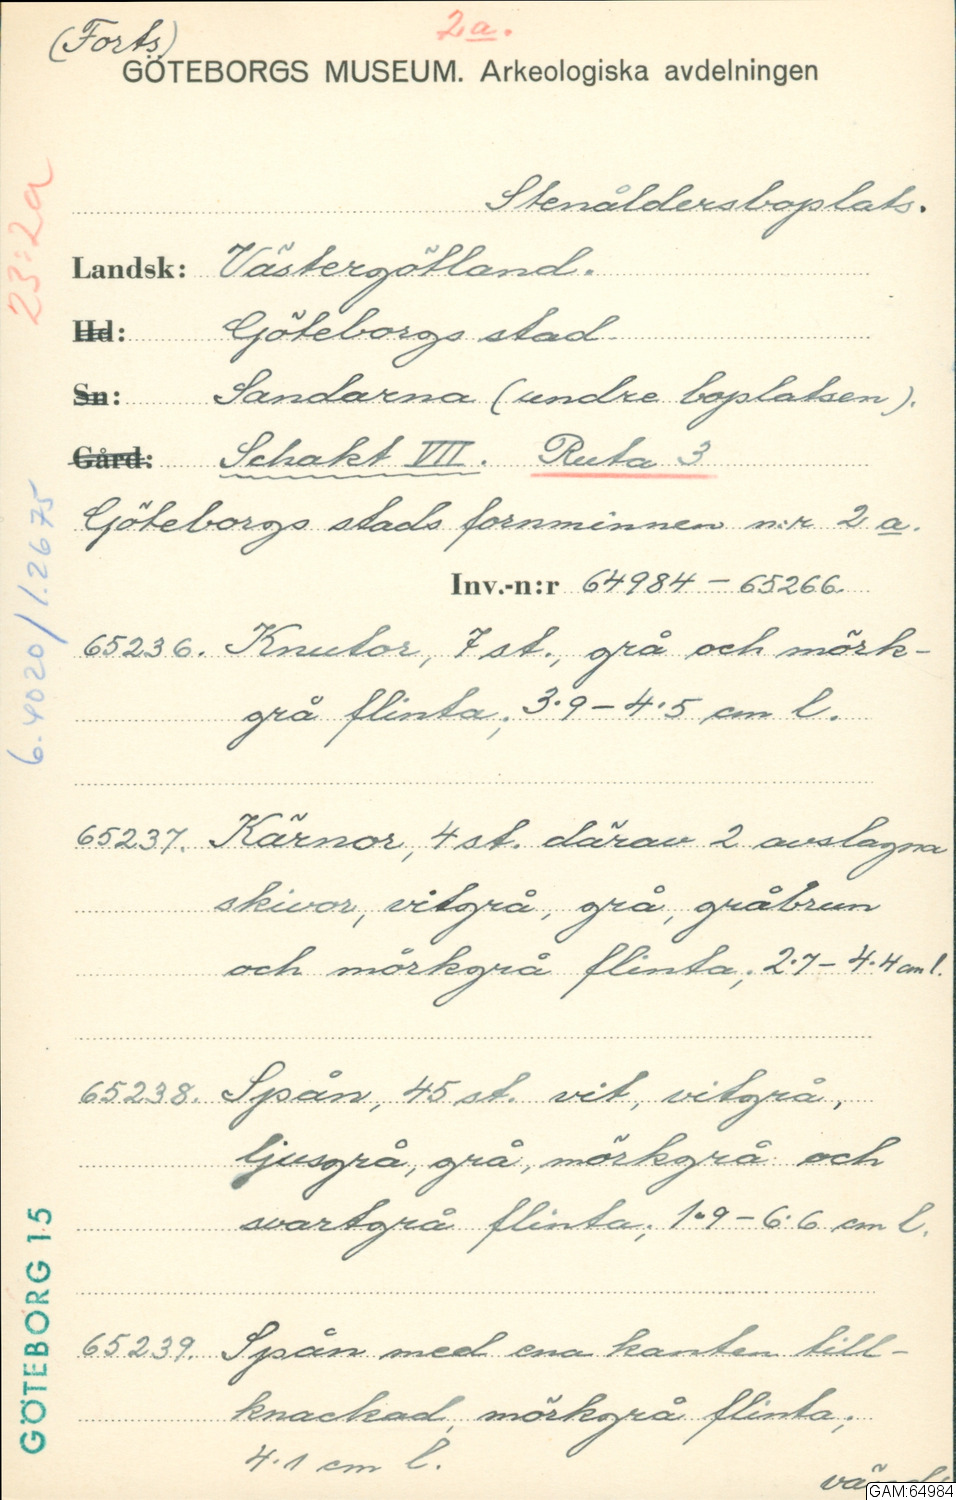 (Forts)
2a.
GÖTEBORGS MUSEUM. Arkeologiska avdelningen
23:2a
Stenåldersboplats.
Landsk: Västergötland.
Hd: Göteborgs stad
Sn: Sandarna (undre boplatsen).
Gård: Schakt VII. Ruta 3
Göteborgs stads fornminnen n:r 2 a.
Inv.-n:r 64984 – 65266.
6.4020/1.2675
65236. Knutor, 7 st., grå och mörk-
grå flinta; 3.9 – 4.5 cm l.
65237. Kärnor, 4 st. därav 2 avslagna
skivor, vitgrå, grå, gråbrun
och mörkgrå flinta; 2.7 – 4.4 cm l.
65238. Spån, 45 st. vit, vitgrå,
ljusgrå, grå, mörkgrå och
svartgrå flinta; 1.9 – 6.6 cm l.
65239. Spån med ena kanten till-
knackad, mörkgrå flinta;
4.1 cm l.
GÖTEBORG 15
GAM:64984